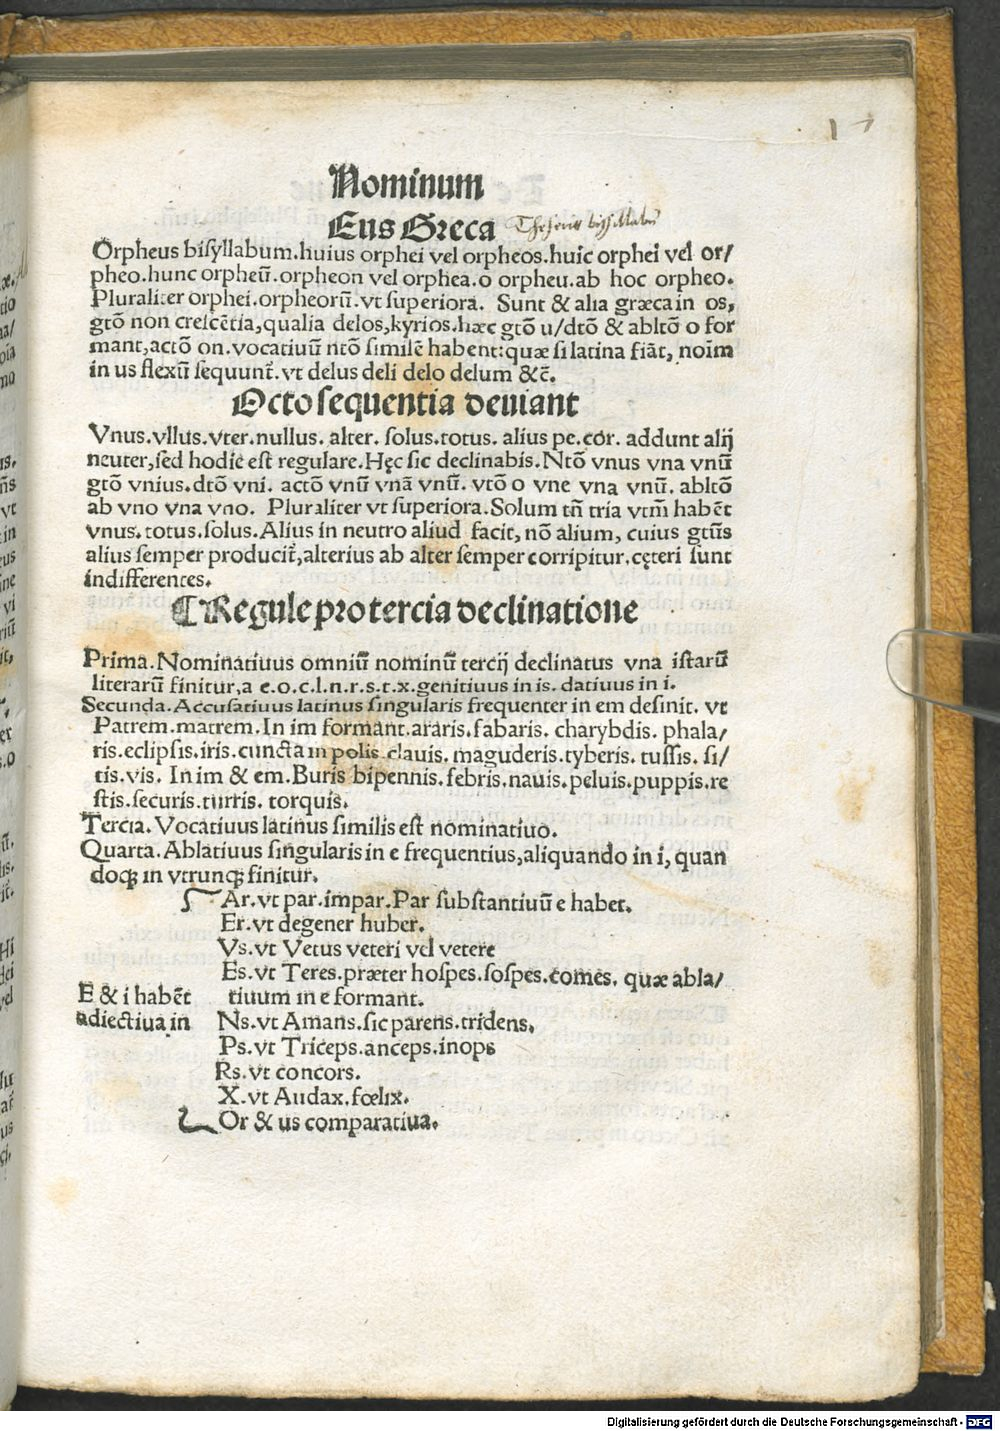 17
Nominum
Eus Greca
Orpheus bisyllabum.huius orphei vel orpheos.huic orphei vel or/
pheo.hunc orpheū.orpheon vel orphea.o orpheu.ab hoc orpheo.
Pluraliter orphei.orpheorū.vt superiora. Sunt & alia græca in os,
gtō non crescētia,qualia delos,kyrios.hæc gtō u/dtō & abltō o for
mant,actō on.vocatiuū ntō similē habent:quæ si latina fiāt, noīm
in us flexū sequunt̄.vt delus deli delo delum &c̄.
Octo sequentia deuiant
Vnus.vllus.vter.nullus. alter. solus.totus. alius pe.cor. addunt alij
neuter,sed hodie est regulare.Hęc sic declinabis.Ntō vnus vna vnū
gtō vnius.dtō vni. actō vnū vnā vnū. vtō o vne vna vnū. abltō
ab vno vna vno. Pluraliter vt superiora.Solum tñ tria vtm̄ habēt
vnus.totus.solus.Alius in neutro aliud facit, nō alium, cuius gtūs
alius semper producit̄,alterius ab alter semper corripitur.cęteri sunt
indifferentes.
¶ Regule pro tercia declinatione
Prima.Nominatiuus omniū nominū tercij declinatus vna istarū
literarū finitur,a e.o.c.l.n.r.s.t.x.genitiuus in is. datiuus in i.
Secunda.Accusatiuus latinus singularis frequenter in em desinit. vt
Patrem.matrem.In im formant.araris.fabaris. charybdis. phala/
ris.eclipsis.iris.cuncta in polis.clauis. maguderis.tyberis. tussis. si/
tis.vis. In im & em.Buris bipennis.febris.nauis.peluis.puppis.re
stis.securis.turris. torquis.
Tercia.Vocatiuus latinus similis est nominatiuo.
Quarta.Ablatiuus singularis in e frequentius,aliquando in i, quan
doqꝫ in vtrunqꝫ finitur.
Ar.vt par.impar.Par substantiuū e habet.
Er.vt degener huber.
Vs.vt Vetus veteri vel vetere
Es.vt Teres.præter hospes.sospes.comes. quæ abla/
E & i habēt tiuum in e formant.
adiectiua in Ns.vt Amans.sic parens.tridens.
Ps.vt Triceps.anceps.inops
Rs.vt concors.
X.vt Audax.fœlix.
Or & us comparatiua.
Digitalisierung gefördert durch die Deutsche Forschungsgemeinschaft - DFG